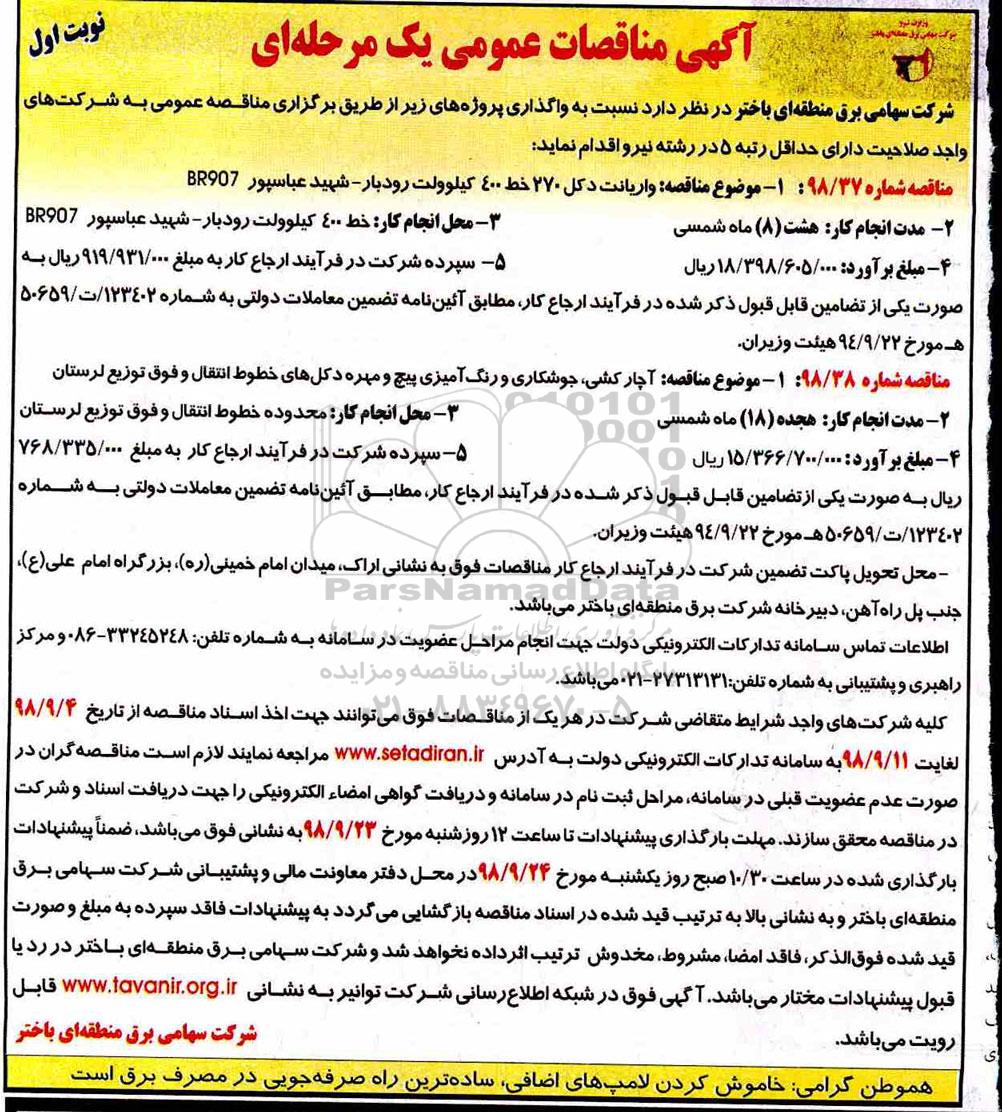 وزارت نیرو
شرکت سهامی برق منطقه‌ای باختر
نوبت اول
آگهی مناقصات عمومی یک مرحله‌ای
شرکت سهامی برق منطقه‌ای باختر در نظر دارد نسبت به واگذاری پروژه‌های زیر از طریق برگزاری مناقصه عمومی به شرکت‌های
واجد صلاحیت دارای حداقل رتبه ۵ در رشته نیرو اقدام نماید:
مناقصه شماره ۹۸/۳۷: ۱- موضوع مناقصه: واریانت دکل ۲۷۰ خط ۴۰۰ کیلوولت رودبار- شهید عباسپور BR907
۲- مدت انجام کار: هشت (۸) ماه شمسی ۳- محل انجام کار: خط ۴۰۰ کیلوولت رودبار- شهید عباسپور BR907
۴- مبلغ برآورد: ۱۸/۳۹۸/۶۰۵/۰۰۰ ریال ۵- سپرده شرکت در فرآیند ارجاع کار به مبلغ ۹۱۹/۹۳۱/۰۰۰ ریال به
صورت یکی از تضامین قابل قبول ذکر شده در فرآیند ارجاع کار، مطابق آئین‌نامه تضمین معاملات دولتی به شماره ۱۲۳۴۰۲/ت/۵۰۶۵۹
هـ مورخ ۹۴/۹/۲۲ هیئت وزیران.
مناقصه شماره ۹۸/۳۸: ۱- موضوع مناقصه: آچارکشی، جوشکاری و رنگ‌آمیزی پیچ و مهره دکل‌های خطوط انتقال و فوق توزیع لرستان
۲- مدت انجام کار: هجده (۱۸) ماه شمسی ۳- محل انجام کار: محدوده خطوط انتقال و فوق توزیع لرستان
۴- مبلغ برآورد: ۱۵/۳۶۶/۷۰۰/۰۰۰ ریال ۵- سپرده شرکت در فرآیند ارجاع کار به مبلغ ۷۶۸/۳۳۵/۰۰۰
ریال به صورت یکی از تضامین قابل قبول ذکر شده در فرآیند ارجاع کار، مطابق آئین‌نامه تضمین معاملات دولتی به شماره
۱۲۳۴۰۲/ت/۵۰۶۵۹ هـ مورخ ۹۴/۹/۲۲ هیئت وزیران.
- محل تحویل پاکت تضمین شرکت در فرآیند ارجاع کار مناقصات فوق به نشانی اراک، میدان امام خمینی(ره)، بزرگراه امام علی(ع)،
ParsNamadData
جنب پل راه‌آهن، دبیرخانه شرکت برق منطقه‌ای باختر می‌باشد.
اطلاعات تماس سامانه تدارکات الکترونیکی دولت جهت انجام مراحل عضویت در سامانه به شماره تلفن: ۳۳۲۴۵۲۴۸-۰۸۶ و مرکز
پایگاه اطلاع رسانی مناقصه و مزایده
راهبری و پشتیبانی به شماره تلفن: ۲۷۳۱۳۱۳۱-۰۲۱ می‌باشد.
۰۲۱-۸۸۳۴۹۶۷۰-۵
کلیه شرکت‌های واجد شرایط متقاضی شرکت در هر یک از مناقصات فوق می‌توانند جهت اخذ اسناد مناقصه از تاریخ ۹۸/۹/۴
لغایت ۹۸/۹/۱۱ به سامانه تدارکات الکترونیکی دولت به آدرس www.setadiran.ir مراجعه نمایند لازم است مناقصه‌گران در
صورت عدم عضویت قبلی در سامانه، مراحل ثبت نام در سامانه و دریافت گواهی امضاء الکترونیکی را جهت دریافت اسناد و شرکت
در مناقصه محقق سازند. مهلت بارگذاری پیشنهادات تا ساعت ۱۲ روز شنبه مورخ ۹۸/۹/۲۳ به نشانی فوق می‌باشد، ضمناً پیشنهادات
بارگذاری شده در ساعت ۱۰/۳۰ صبح روز یکشنبه مورخ ۹۸/۹/۲۴ در محل دفتر معاونت مالی و پشتیبانی شرکت سهامی برق
منطقه‌ای باختر و به نشانی بالا به ترتیب قید شده در اسناد مناقصه بازگشایی می‌گردد به پیشنهادات فاقد سپرده به مبلغ و صورت
قید شده فوق‌الذکر، فاقد امضا، مشروط، مخدوش ترتیب اثر داده نخواهد شد و شرکت سهامی برق منطقه‌ای باختر در رد یا
قبول پیشنهادات مختار می‌باشد. آگهی فوق در شبکه اطلاع‌رسانی شرکت توانیر به نشانی www.tavanir.org.ir قابل
رویت می‌باشد.
شرکت سهامی برق منطقه‌ای باختر
هموطن گرامی: خاموش کردن لامپ‌های اضافی، ساده‌ترین راه صرفه‌جویی در مصرف برق است